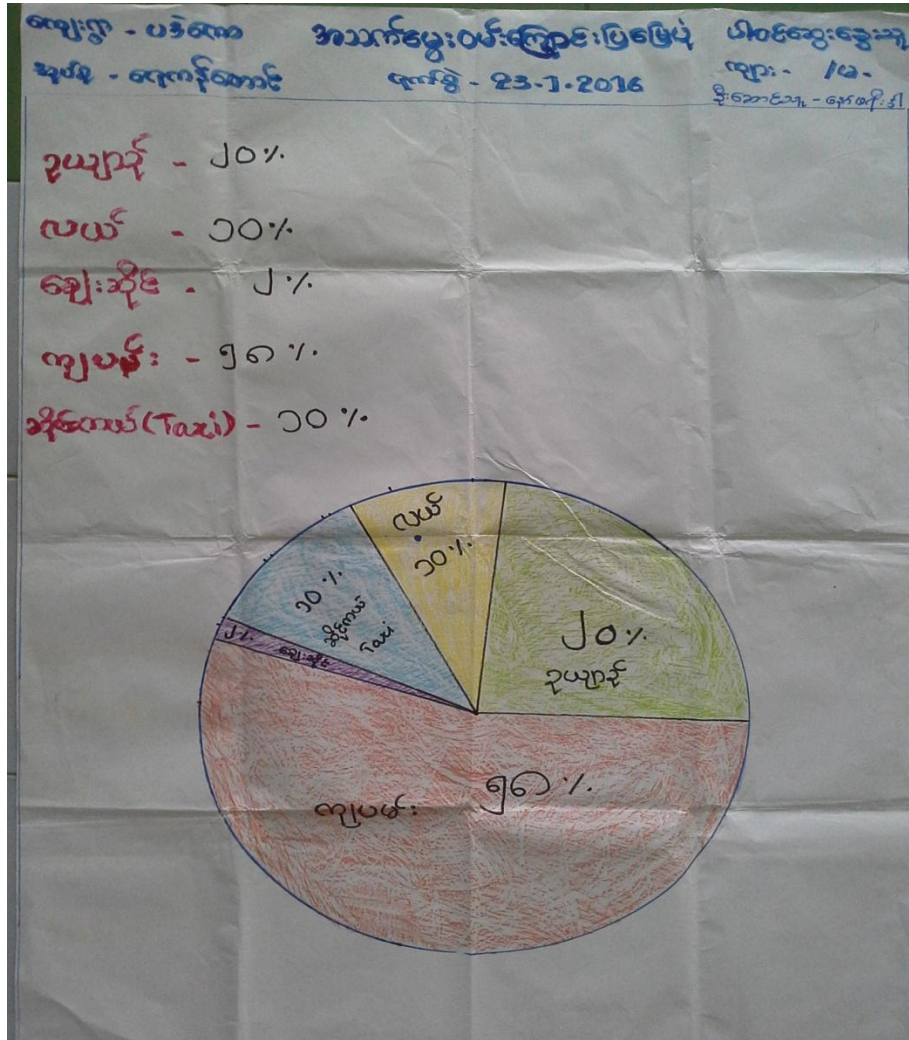 ကျေးရွာ - ပဒဲကော အသက်မွေးဝမ်းကြောင်းပြမြေပုံ ပါဝင်ဆွေးနွေးသူ
အုပ်စု - ရေကန်တောင် ရက်စွဲ - 23.1.2016 ကျား - /မ -
ဦးဆောင်သူ -
ဥယျာဉ် - ၂၀%
လယ် - ၁၀%
ဈေးဆိုင် - ၂%
ကျပန်း - ၅၈%
ဆိုင်ကယ်(Taxi) - ၁၀%
လယ်
၁၀%
၁၀%
ဆိုင်ကယ်
Taxi
၂% ဈေးဆိုင်
၂၀%
ဥယျာဉ်
ကျပမ်း ၅၈%